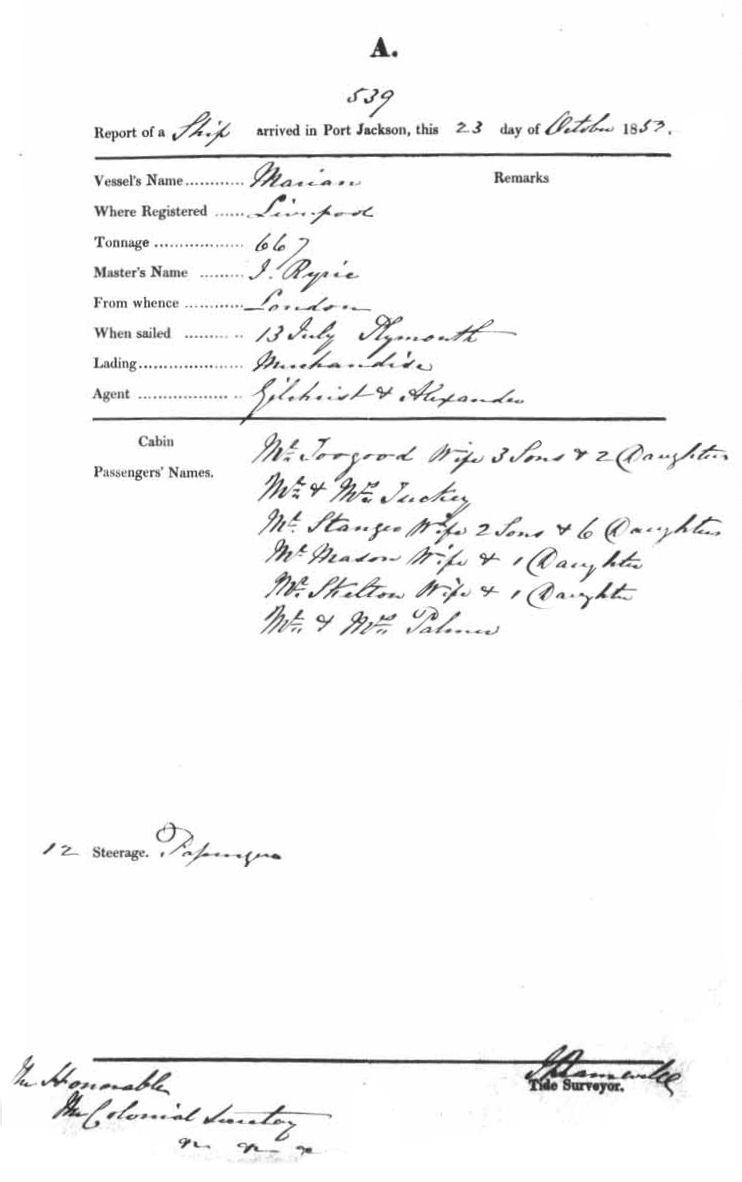 A.
539
Report of a Ship arrived in Port Jackson, this 23 day of October 1853.
Vessel's Name ............ Marian Remarks
Where Registered ...... Liverpool
Tonnage .................. 667
Master's Name ......... J. Ryrie
From whence ............ London
When sailed ............ 13 July Plymouth
Lading ..................... Merchandise
Agent ..................... Gilchrist & Alexander
Cabin
Passengers' Names.
Mr. Toogood Wife 3 Sons & 2 Daughters
Mr. & Mrs. Tuckey
Mr. Stanger Wife 2 Sons & 6 Daughters
Mr. Mason Wife & 1 Daughter
Mr. Skelton Wife & 1 Daughter
Mr. & Mrs. Palmer
12 Steerage. Passengers
Tide Surveyor.
The Honorable
The Colonial Secretary